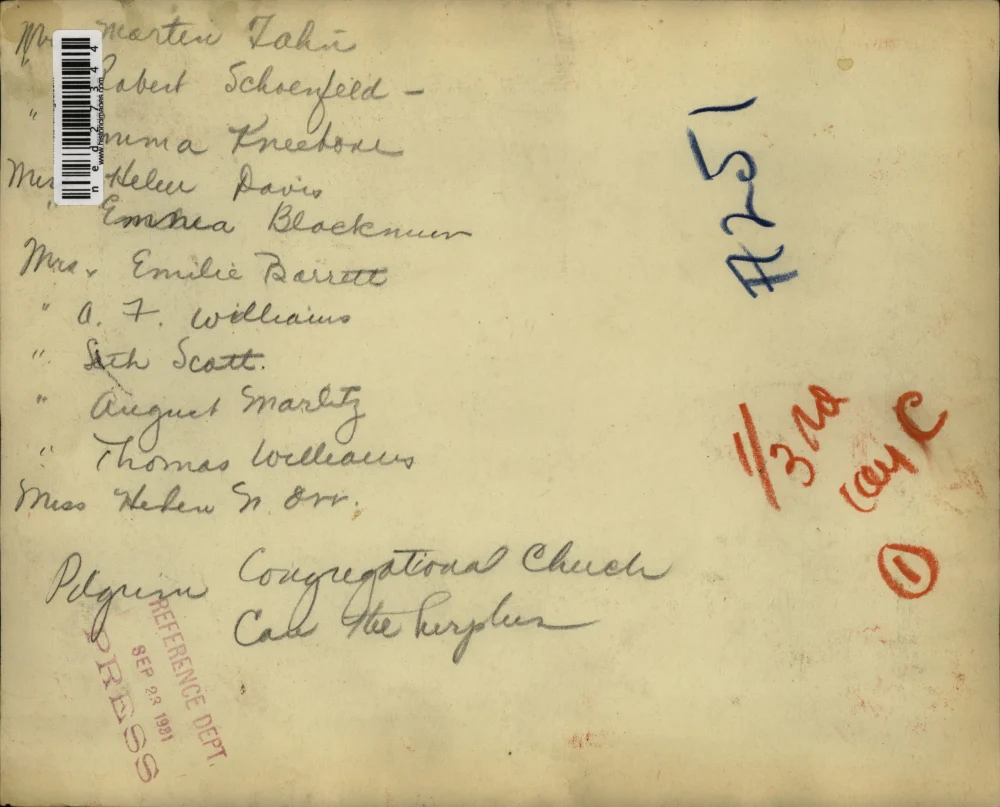 Marten Fahn
Robert Schoenfeld -
" Emma Kneebone
Miss Helen Davis
" Emma Blackmun
Mrs. Emilie Barrett
" A. F. Williams
" Seth Scott.
" August Marlitz
" Thomas Williams
Miss Helen N. Orr.
Pilgrim Congregational Church
Can the Surplus
ned27344
www.historicimages.com
REFERENCE DEPT.
SEP 23 1981
PRESS
A251
1/3rd
C
1